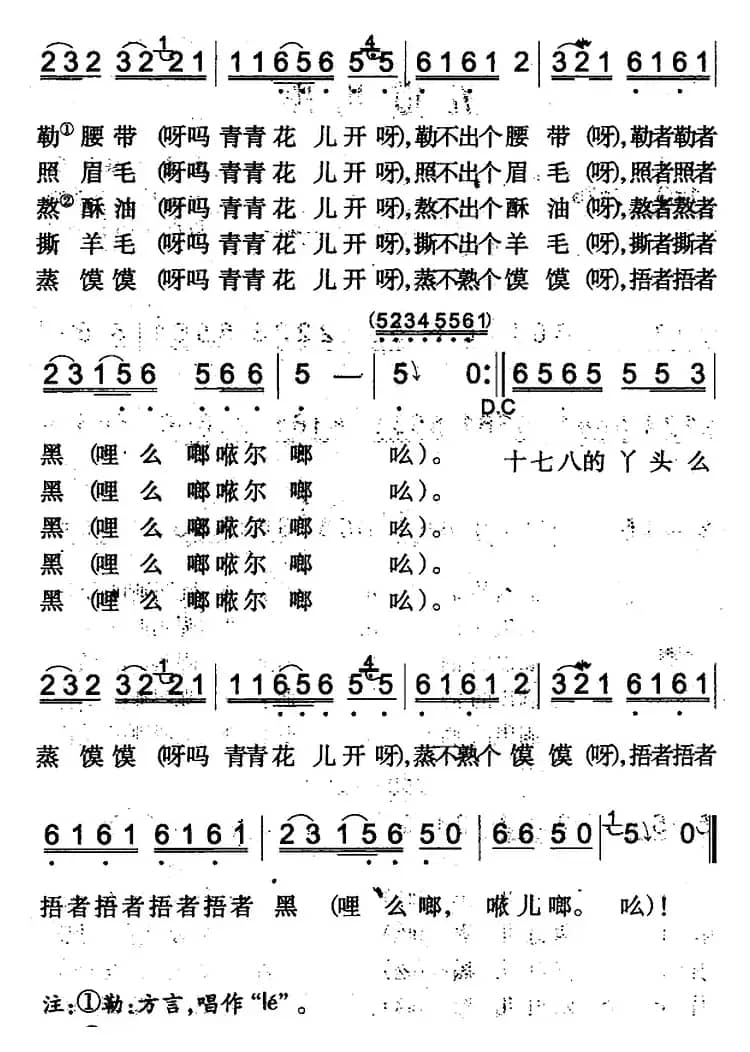 232 3221 | 11656 55 | 6161 2 | 321 6161
勒①腰带(呀吗青青花儿开呀),勒不出个腰带(呀),勒者勒者
照眉毛(呀吗青青花儿开呀),照不出个眉毛(呀),照者照者
熬②酥油(呀吗青青花儿开呀),熬不出个酥油(呀),熬者熬者
撕羊毛(呀吗青青花儿开呀),撕不出个羊毛(呀),撕者撕者
蒸馍馍(呀吗青青花儿开呀),蒸不熟个馍馍(呀),捂者捂者
(5234 5561)
23156 566 | 5 — | 5 0 :‖ 6565 553
D.C
黑(哩么啷哝尔啷 吆)。 十七八的丫头么
黑(哩么啷哝尔啷 吆)。
黑(哩么啷哝尔啷 吆)。
黑(哩么啷哝尔啷 吆)。
黑(哩么啷哝尔啷 吆)。
232 3221 | 11656 55 | 6161 2 | 321 6161
蒸馍馍(呀吗青青花儿开呀),蒸不熟个馍馍(呀),捂者捂者
6161 6161 | 23156 650 | 6650 | 5 0 ‖
捂者捂者捂者捂者黑(哩么啷,哝儿啷。吆)!
注:①勒:方言,唱作“lé”。